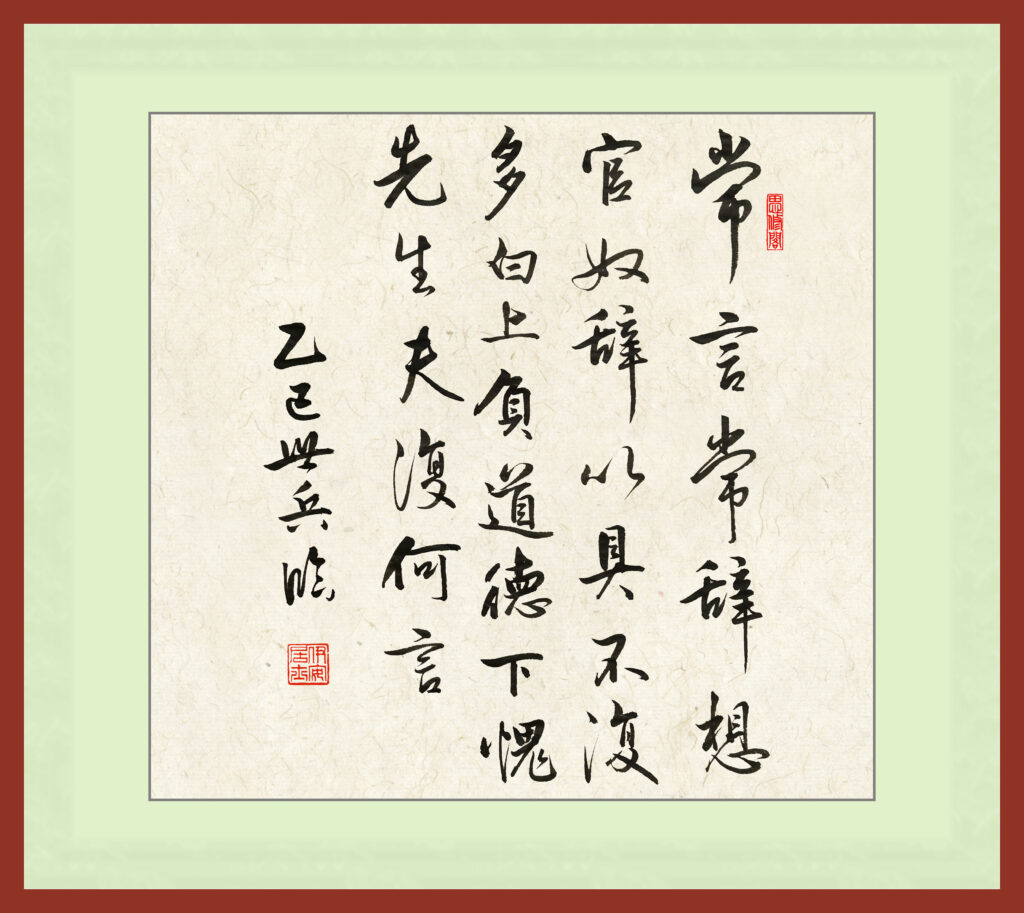 思修閣
常言常辞想
官奴辞以具不復
多白上負道德下愧
先生夫復何言
乙巳世兵臨